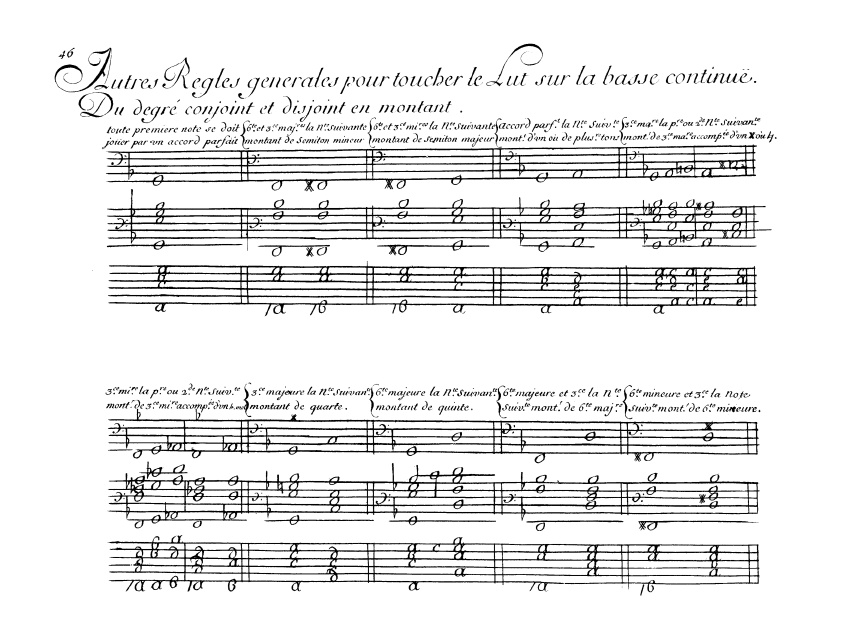 46
Autres Regles generales pour toucher le Lut sur la basse continuë.
Du degré conjoint et disjoint en montant.
toute premiere note se doit jouer par un accord parfait
6te. et 3ce. maj.re la Nte. Suivante montant de Semiton mineur
6te. et 3ce. mi.ce la Nte. Suivante montant de Semiton majeur
accord parf.t la Nte. Suiv.te mont.t d'un où de plus.rs tons
3ce. ma.re la p.re ou 2.e Nte. Suivan.te mont.t de 3ce. ma.re accomp.ée d'un x où 4.
3ce. mi.re la p.re ou 2.de Nte. Suiv.te mont.t de 3ce. mi.re accomp.ée d'un b. où
3ce. majeure la Nte. Suivan.te montant de quarte.
6te. majeure la Nte. Suivan.te montant de quinte.
6te. majeure et 3ce. la Nte. Suiv.te mont.t de 6te. maj.re
6te. mineure et 3ce. la Note Suiv.te mont.t de 6te. mineure.